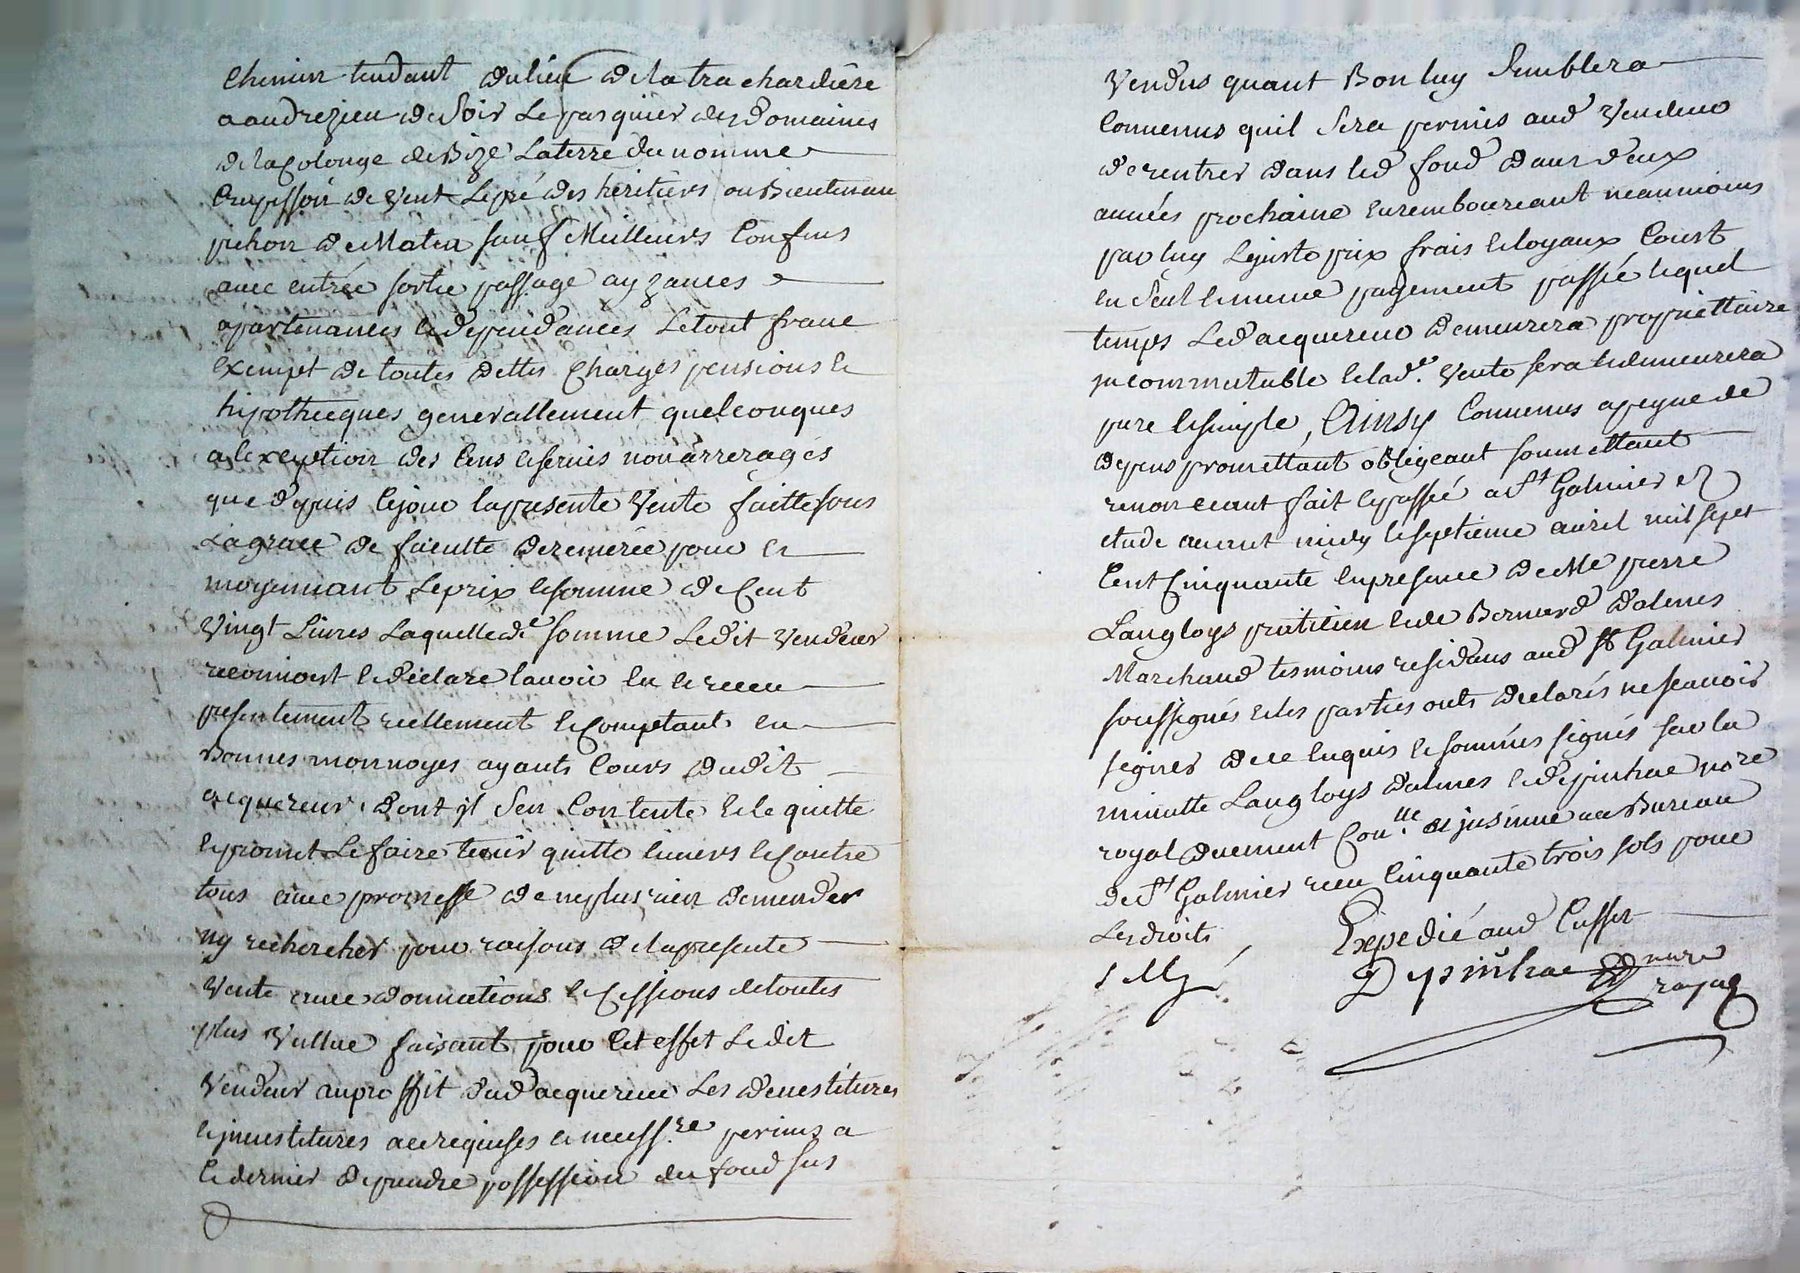 chemin tendant du lieu de la trachardière
a andrezieu de Soir Le pasquier des domaines
de la Colonge de Bize La terre du nommé
de vent Le pré des héritiers ou Bientenan
pichon de Matin sauf Meilleurs Confins
avec entrée sortie passage ayzances
apartenances & dependances Le tout franc
exempt de toutes dettes charges pensions &
hipothecques generallement quelconques
a lexeption des Cens & servis non arreragés
que depuis le jour la presente Vente faitte sous
La grace de faculté de remerée pour &
moyennant Le prix & somme de Cent
Vingt Livres Laquelle de somme Ledit Vendeur
reconnoit & déclare lavoir eu & receu
presentement reellement & Comptant en
Bonnes monnoyes ayants Cours dudit
acquereur, dont jl sen Contente & le quitte
& promet Le faire tenir quitte envers & Contre
tous avec promesse de ne plus rien demender
ny rechercher pour raisons de la presente
Vente avec donnations & Cessions de toutes
plus Vallue faisant pour Cet effet Ledit
Vendeur au proffit dud acquereur Les devestitures
& jnvestitures a ce requises & necess.re permis a
Ce dernier de prendre possession du fond sus
Vendus quant Bon luy Semblera
Convenus quil Sera permis aud Vendeur
de rentrer dans led fond dans deux
années prochaine en rembourceant neanmoins
par luy Le juste prix frais & loyaux Coust
en Seul & meme payement passé lequel
temps Led acquereur demeurera propriettaire
jncommutable & lad.e Vente sera & demeurera
pure & simple, Ainsy Convenus a peyne de
depens promettant obligeant soumettant
renonceant fait & passé a St Galmier en
etude avant midy le septieme avril mil sept
Cent Cinquante en presence de Me pierre
Langloys pratitien & de Bernard dalmes
Marchand tesmoins residans aud St Galmier
soussignés & les parties onts declarés ne scavoir
signer de ce enquis & sommés signés sur la
minutte Langloys dalmes & depinhac no.re
royal duement Con.lle & jnsinué au Bureau
de St Galmier receu Cinquante trois sols pour
Les droits
Expedié aud
Depinhac nore
royal